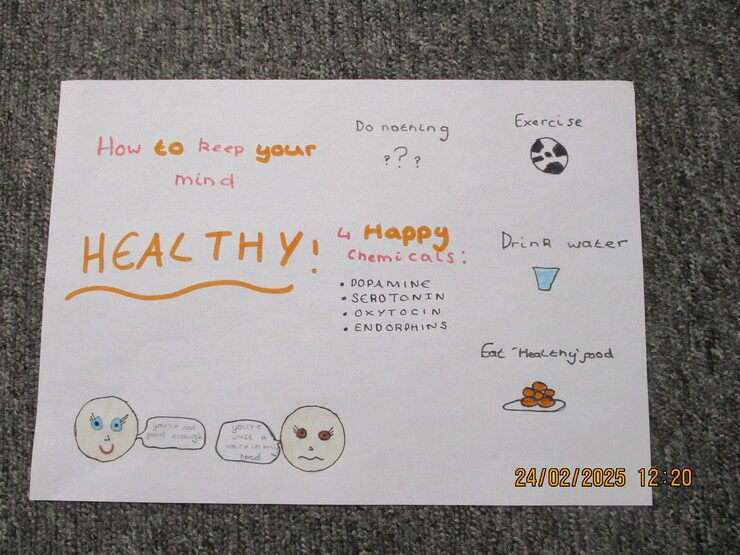 How to keep your
mind
HEALTHY!
Do nothing
???
Exercise
4 Happy
chemicals:
• DOPAMINE
• SEROTONIN
• OXYTOCIN
• ENDORPHINS
Drink water
Eat "Healthy" food
you're not
good enough
you're
just a
voice in my
head
24/02/2025 12:20